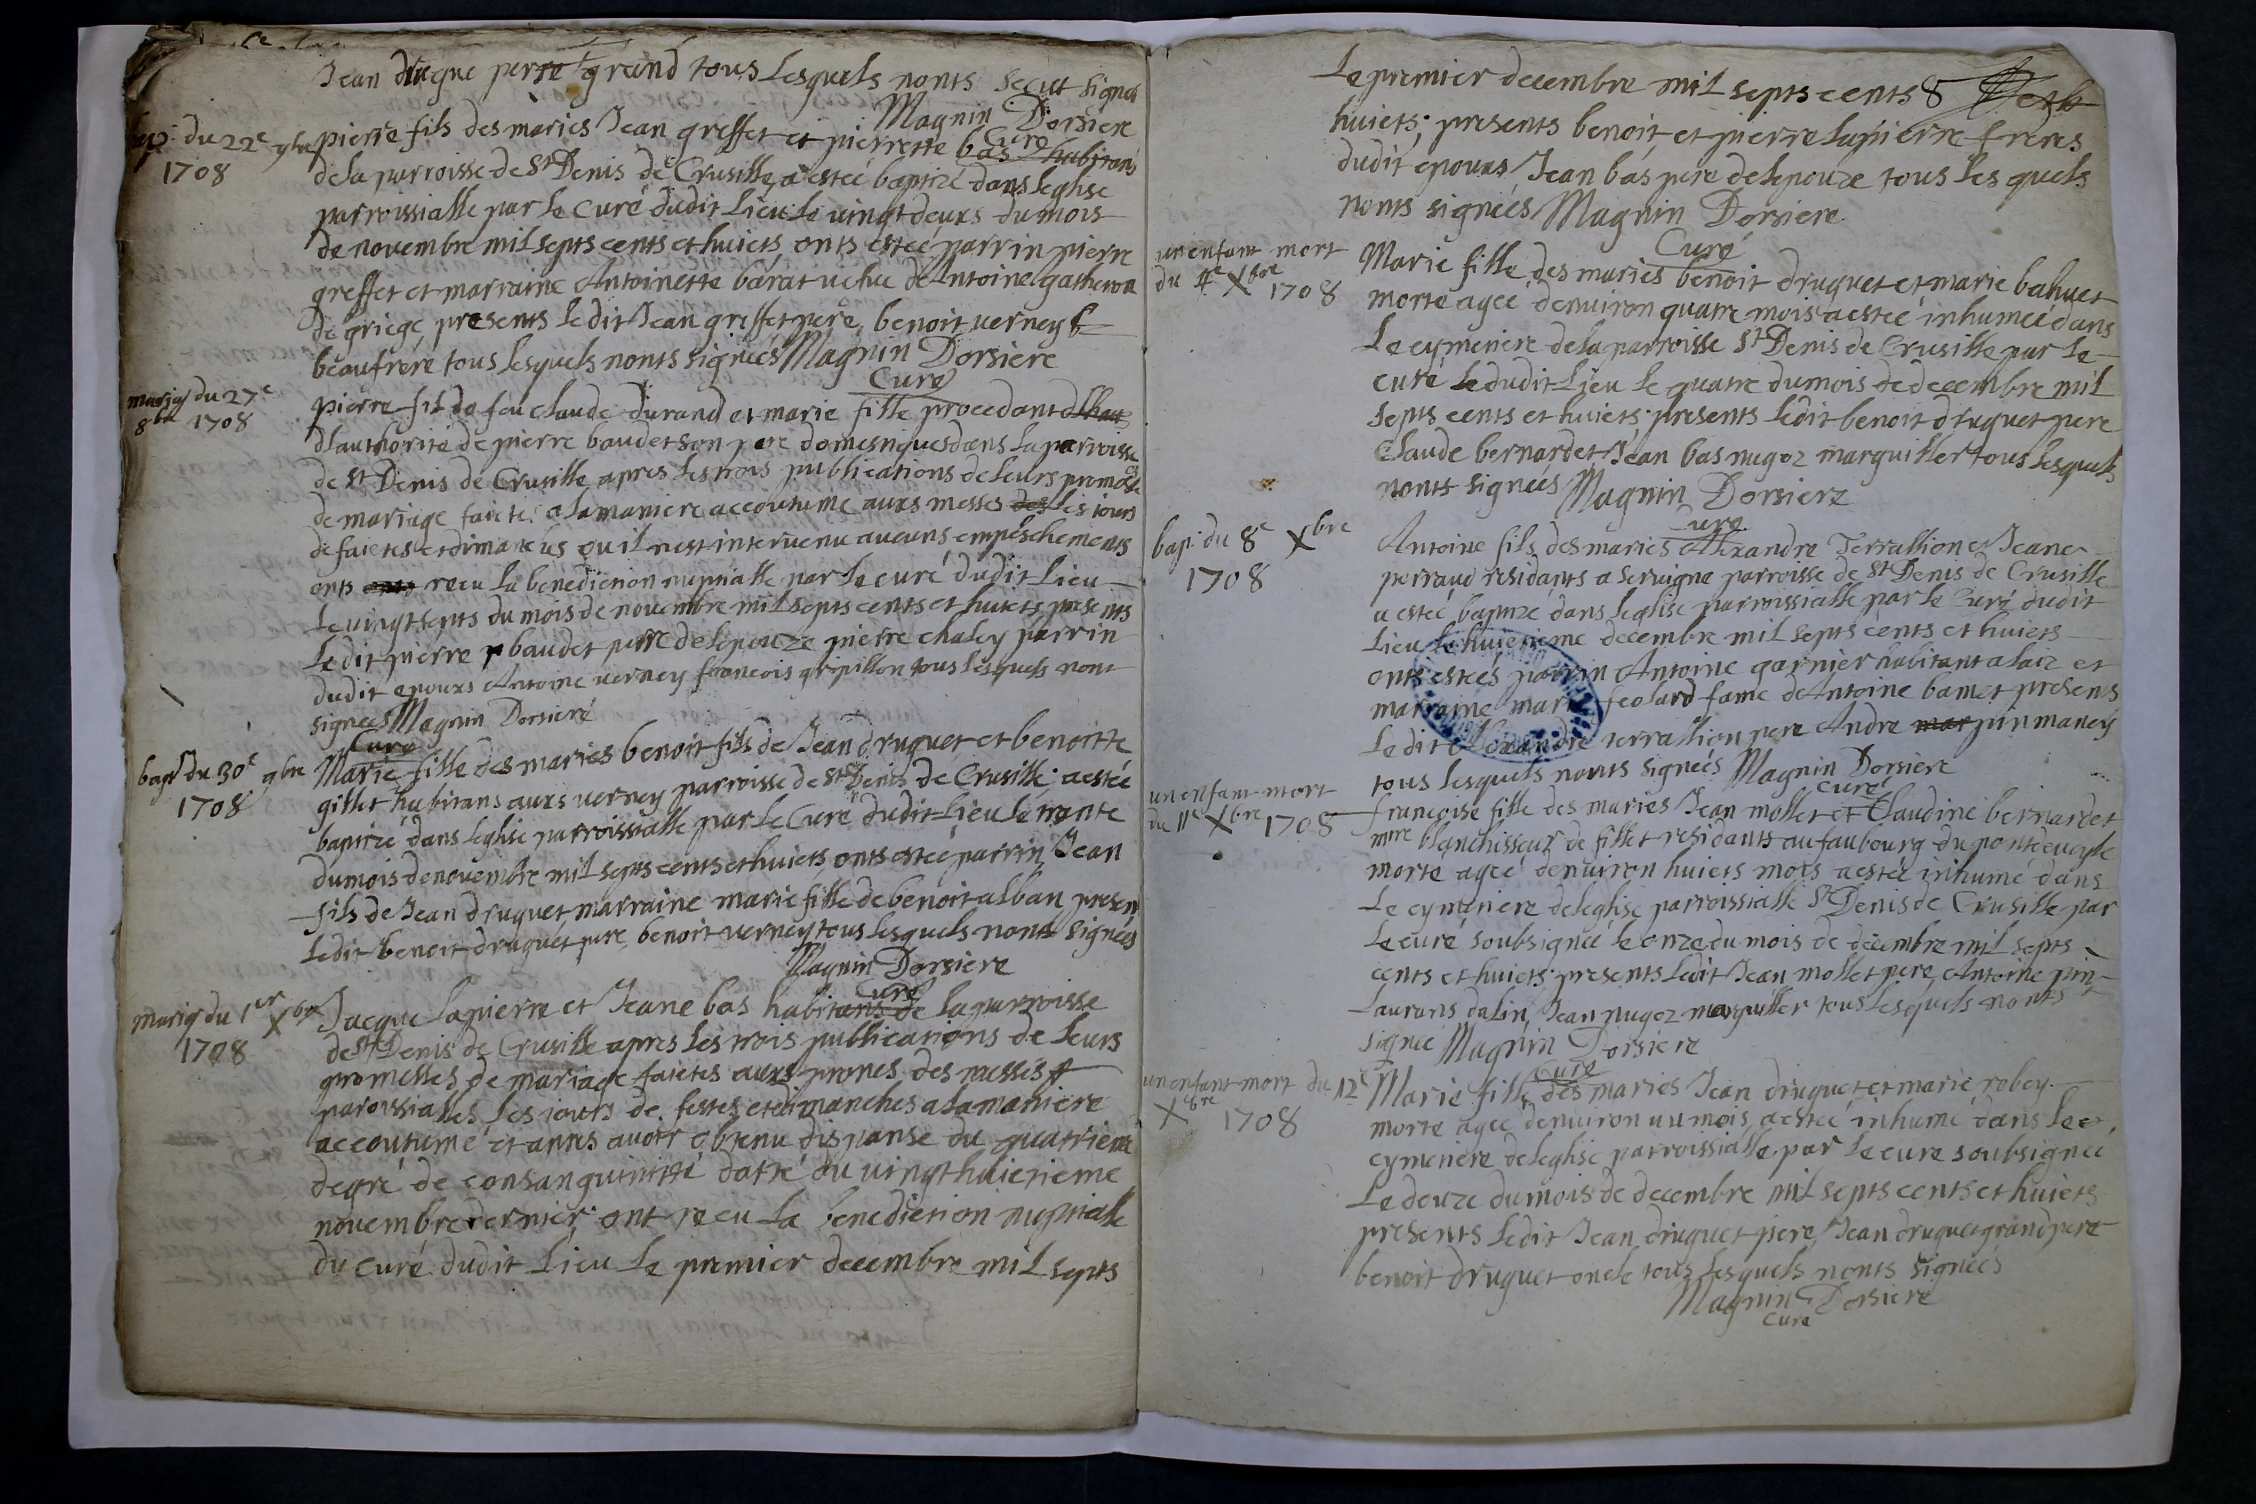 Jean druque perre grand tous Lesquels nonts Sceut signer
Magnin Dorsiere
Curé
bap: du 22e 9bre
1708
pierre fils des maries Jean greffet et pierrette bas habitans
de la parroisse de St Denis de Crusille, a estéé baptizé dans leglise
parroissialle par Le Curé dudit Lieu Le vingt deuxs du mois
de novembre mil septs cents et huicts, onts estéé parrin pierre
greffet et marraine Antoinette barat vefue de Antoine gatheron
de griege, presents ledit Jean greffet pere, benoit verney
beaufrere tous lesquels nonts signéés Magnin Dorsiere
Curé
mariag du 27e
8bre 1708
pierre fils de feu claude durand et marie fille procedant
dlauthorité de pierre baudet son pere domestiques dans la parroisse
de St Denis de Crusille apres les trois publications de leurs promesse
de mariage faicte a la maniere accoutume auxs messes des les jours
de faictes et dimanches ou il nest intervenu aucuns empeschements
onts onts recu la benediction nuptialle par le curé dudit Lieu
Le vingt septs du mois de novembre mil septs cents et huicts presents
Ledit pierre p baudet perre de lepouze pierre chaley parrin
dudit epouxs Antoine verney francois grpillon tous lesquels nont
signéés Magnin Dorsiere
Curé
bapt du 30e 9bre
1708
Marie fille des maries benoit fils de Jean druguet et benoitte
gillet habitans auxs verney parroisse de St Denis de Crusille: a estéé
baptizé dans leglise parroissialle par le Curé dudit Lieu le trente
du mois de novembre mil septs cents et huicts, onts estéé parrin Jean
fils de Jean druguet marraine marie fille de benoit alban presen
ledit benoit druguet pere, benoit verney tous lesquels nonts signéés
Magnin Dorsiere
Curé
mariag du 1er Xbre
1708
Jacque lapierre et Jeane bas habitans de la parroisse
de St Denis de Crusille apres les trois publications de leurs
promesses de mariage faictes auxs prones des messes
paroissialles les jours de festes et dimanches a la maniere
accoutumé et apres avoir obtenu dispanse du quatrieme
degré de consanguinitté datté du vingt huictieme
novembre dernier: ont recu la benediction nuptialle
du curé dudit Lieu le premier decembre mil septs
Le premier decembre mil septs cents 8
huicts; presents benoit et pierre lapierre freres
dudit epouxs Jean bas pere de lepouze tous les quels
nonts signéés Magnin Dorsiere
Curé
un enfant mort
du 4e Xbre 1708
Marie fille des mariés benoit druguet et marie bahuet
morte agéé denviron quatre mois a estéé inhuméé dans
Le cymetiere de la parroisse St Denis de Crusille par le
curé le dudit Lieu le quatre du mois de decembre mil
septs cents et huicts: presents ledit benoit druguet pere
Claude bernardet Jean bas nugoz marguillier tous lesquels
nonts signéés Magnin Dorsiere
Curé
bap: du 8e Xbre
1708
Antoine fils des mariés Alexandre Terrallion et Jeane
perraud residants a Servigna parroisse de St Denis de Crusille
a estéé baptizé dans leglise parroissialle par le Curé dudit
Lieu le huictieme decembre mil septs cents et huicts
onts estéés parrin Antoine garnier habitant a laiz et
marraine marie feolard fame de Antoine bamet presens
Le dit Alexandre terrallion pere Andre mar pin maney
tous lesquels nonts signéés Magnin Dorsiere
Curé
un enfant mort
du 11e Xbre 1708
francoise fille des mariés Jean mollet et Claudine bernardet
mtre blanchisseur de fillet residants au faubourg du pontdeveyle
morte agéé denviron huicts mois a estéé inhumé dans
Le cymetiere de leglise parroissialle St Denis de Crusille par
Le curé soubsignéé le onze du mois de decembre mil septs
cents et huicts: presents ledit Jean mollet pere, Antoine pin
laurans dalin, Jean nugoz marguillier tous lesquels nonts
signéé Magnin Dorsiere
Curé
un enfant mort du 12e
Xbre 1708
Marie fille des mariés Jean druguet et marie robey
morte agéé denviron un mois, a estéé inhumé dans le
cymetiere de leglise parroissialle par le curé soubsignéé
Le douze du mois de decembre mil septs cents et huicts
presents ledit Jean druguet pere Jean druguet grand pere
benoit druguet oncle tous lesquels nonts signéés
Magnin Dorsiere
Curé